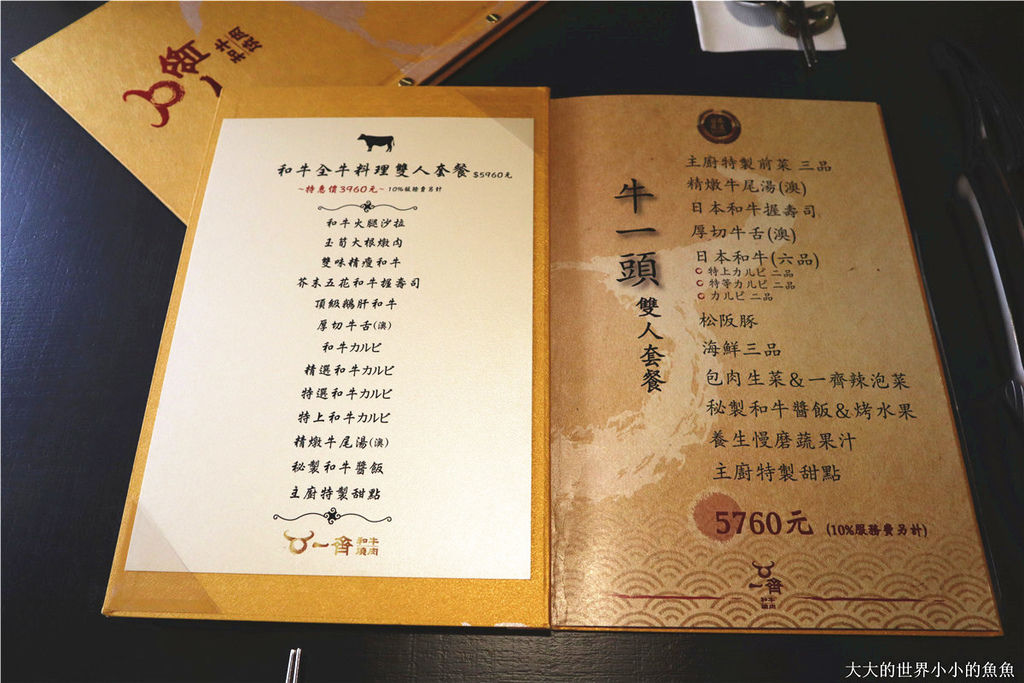 一齊
和牛
燒肉
和牛全牛料理雙人套餐 $5960元
~特惠價3960元~ 10%服務費另計
和牛火腿沙拉
玉筍大根燉肉
雙味精瘦和牛
芥末五花和牛握壽司
頂級鵝肝和牛
厚切牛舌(澳)
和牛カルビ
精選和牛カルビ
特選和牛カルビ
特上和牛カルビ
精燉牛尾湯(澳)
秘製和牛醬飯
主廚特製甜點
一齊 和牛
燒肉
牛一頭 雙人套餐
主廚特製前菜 三品
精燉牛尾湯(澳)
日本和牛握壽司
厚切牛舌(澳)
日本和牛(六品)
特上カルビ 二品
特等カルビ 二品
カルビ 二品
松阪豚
海鮮三品
包肉生菜&一齊辣泡菜
秘製和牛醬飯&烤水果
養生慢磨蔬果汁
主廚特製甜點
5760元 (10%服務費另計)
一齊
和牛
燒肉
大大的世界小小的魚魚